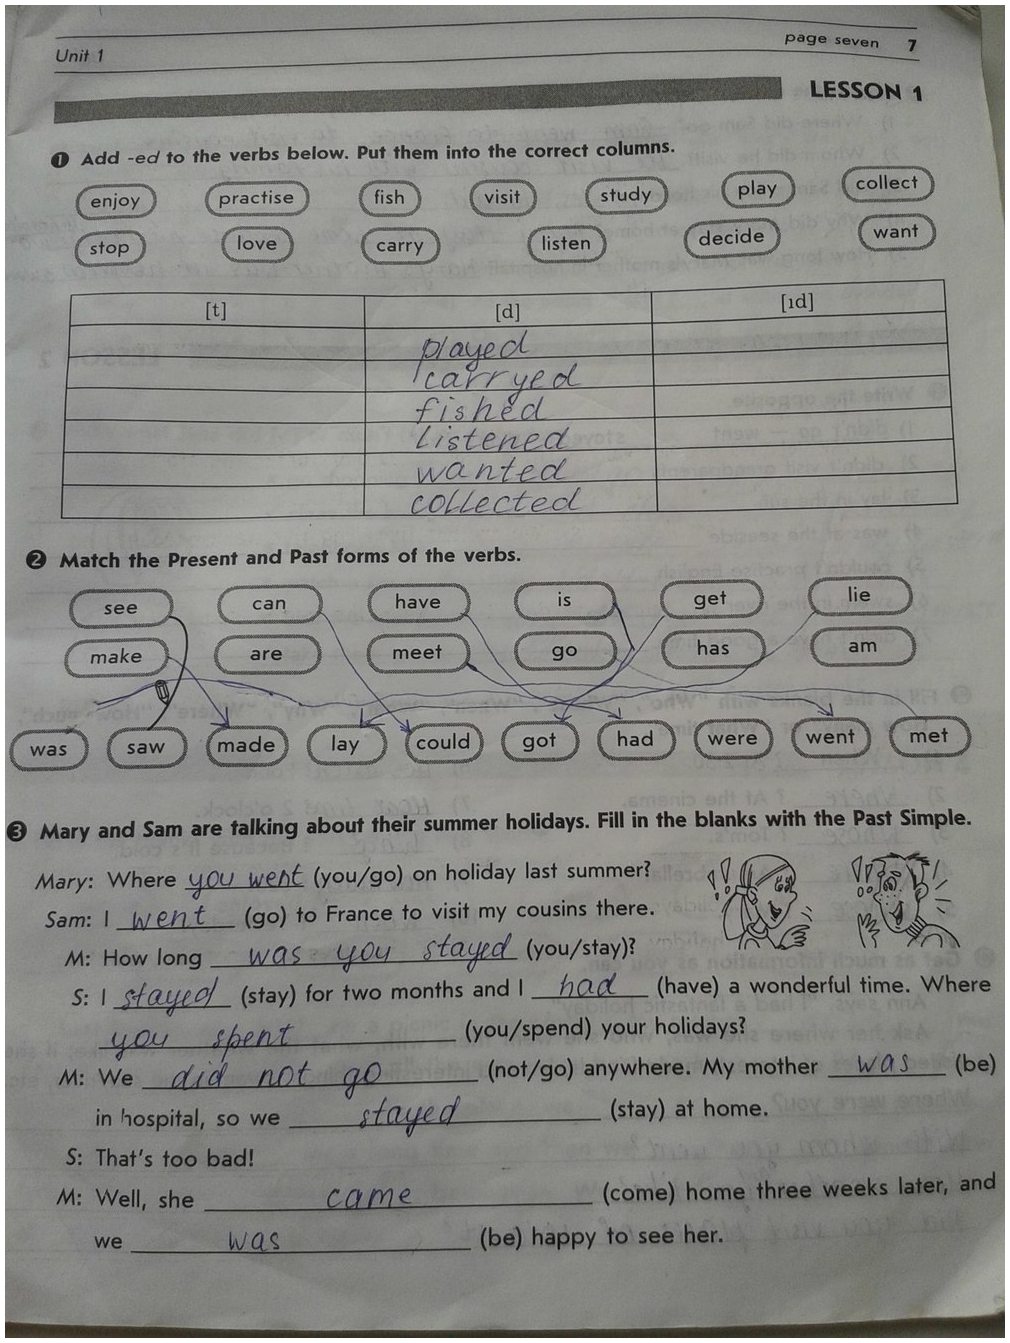 Unit 1
page seven 7
LESSON 1
1 Add -ed to the verbs below. Put them into the correct columns.
enjoy practise fish visit study play collect
stop love carry listen decide want
[t] [d] [ɪd]
played
carryed
fished
listened
wanted
collected
2 Match the Present and Past forms of the verbs.
see can have is get lie
make are meet go has am
was saw made lay could got had were went met
3 Mary and Sam are talking about their summer holidays. Fill in the blanks with the Past Simple.
Mary: Where you went (you/go) on holiday last summer?
Sam: I went (go) to France to visit my cousins there.
M: How long was you stayed (you/stay)?
S: I stayed (stay) for two months and I had (have) a wonderful time. Where
you spent (you/spend) your holidays?
M: We did not go (not/go) anywhere. My mother was (be)
in hospital, so we stayed (stay) at home.
S: That's too bad!
M: Well, she came (come) home three weeks later, and
we was (be) happy to see her.